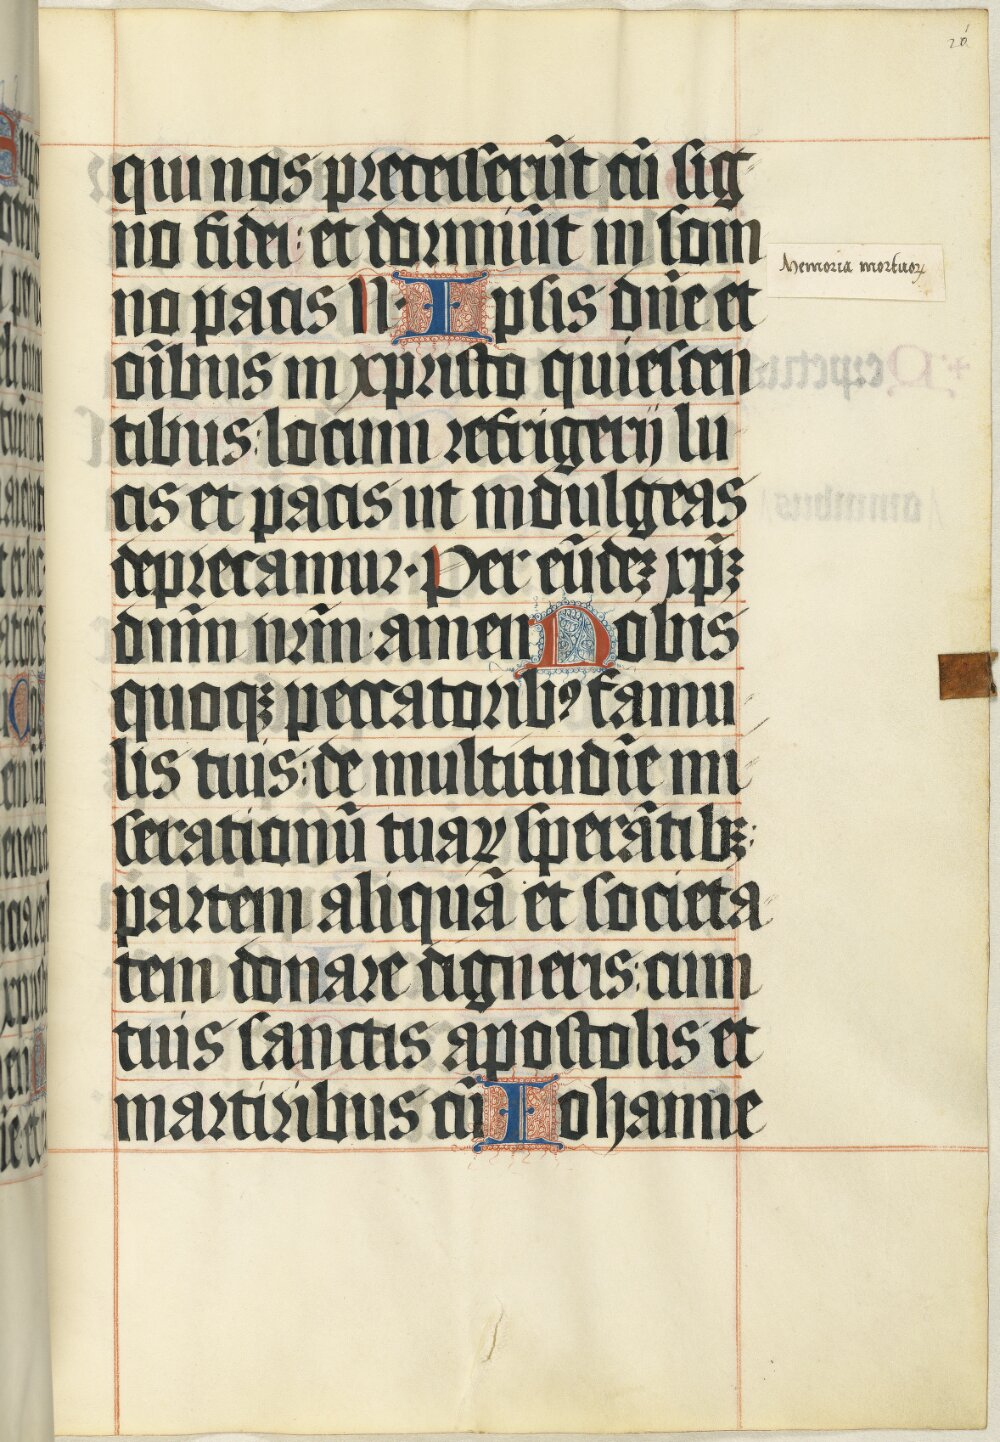 qui nos precesserūt cū sig
no fidei: et dormiūt in som
no pacis N. Ipsis dn̄e et
oībus in xpristo quiescen
tibus: locum refrigerij lu
cis et pacis ut indulgeas
deprecamur. Per eūdeꝫ xp̄ꝫ
dnm̄ nrm̄. amen Nobis
quoqꝫ peccatoribꝰ famu
lis tuis: de multitudīe mi
serationū tuaꝝ sperātibꝫ:
partem aliquā et societa
tem donare digneris: cum
tuis sanctis apostolis et
martiribus cū Iohanne
Memoria mortuoꝝ